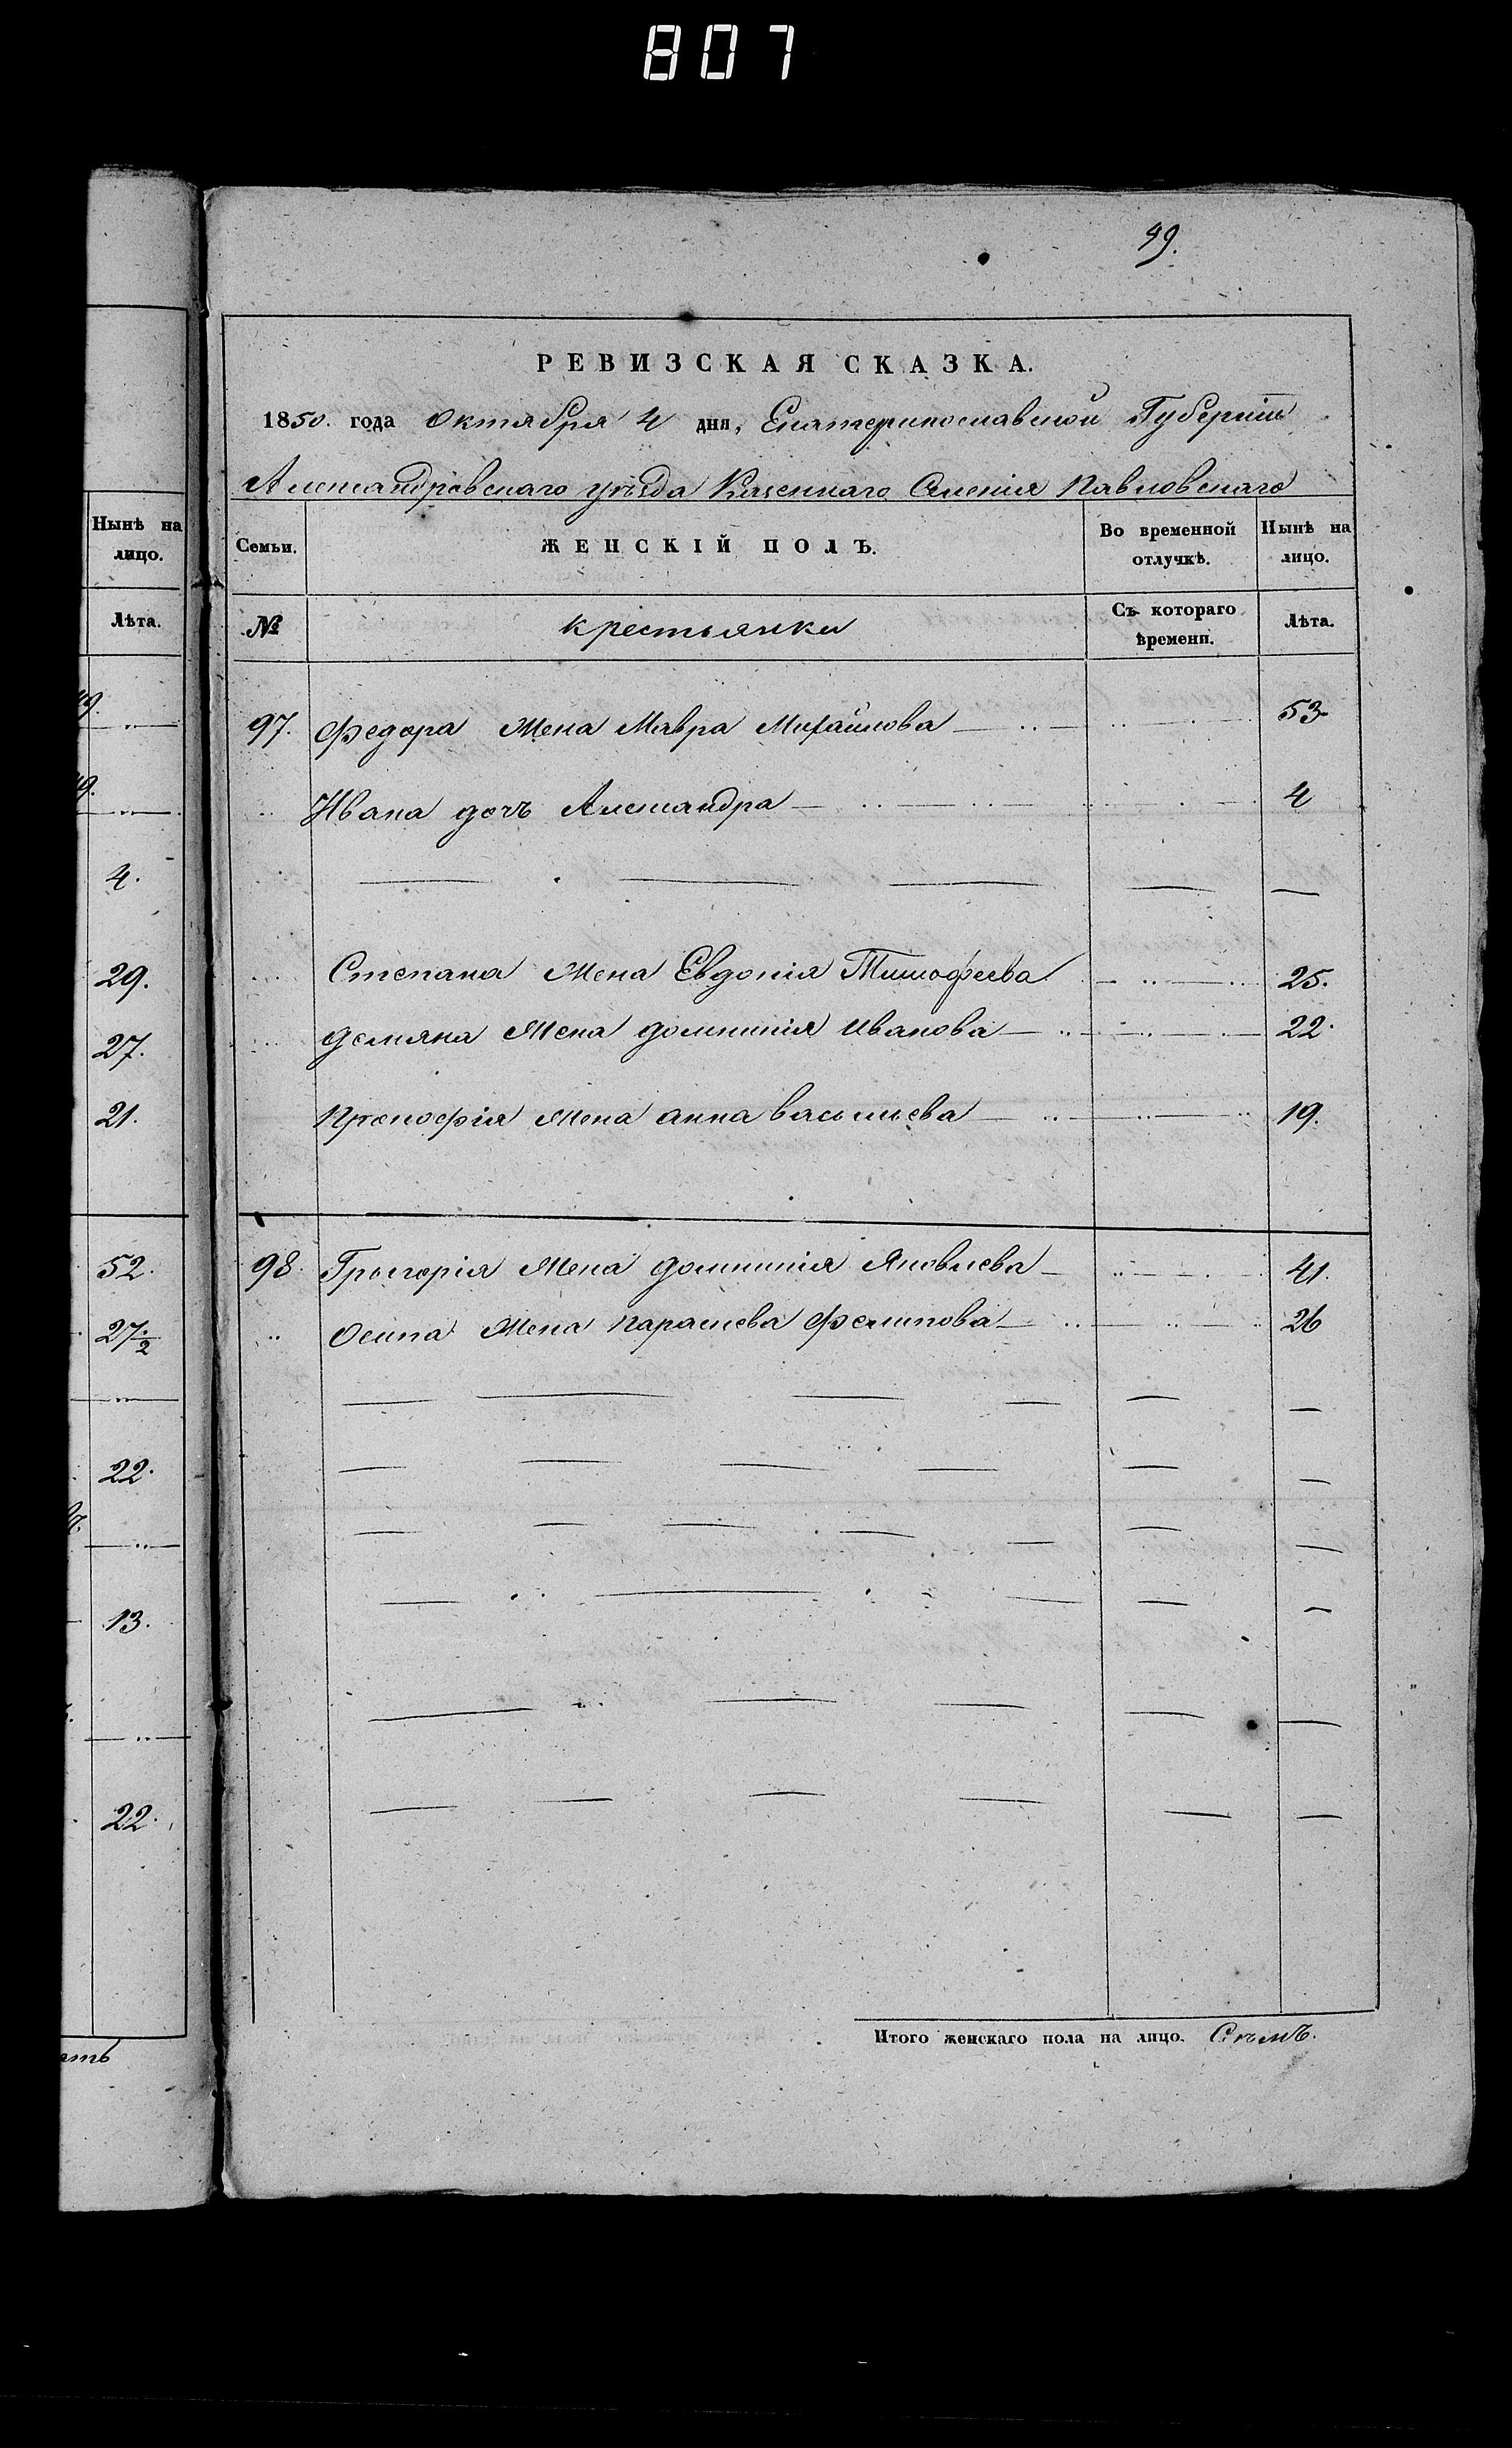 807
49.
РЕВИЗСКАЯ СКАЗКА.
1850. года Октября 4 дня, Екатеринославской Губерніи
Александровскаго уѣзда Казеннаго Селенія Павловскаго
Нынѣ на лицо.
Лѣта.
4.
29.
27.
21.
52.
27.½
22.
13.
22.
Семьи.
ЖЕНСКІЙ ПОЛЪ.
Во временной отлучкѣ.
Нынѣ на лицо.
№
крестьянки
Съ котораго времени.
Лѣта.
97. Федора жена Мавра Михайлова 53
Ивана дочъ Александра 4
Степана жена Евдокія Тимофеева 25.
демяна жена домникія Иванова 22.
Прокофія жена анна васильева 19.
98. Григорія жена домникія Яковлева 41.
осипа жена параскева Филипова 26
Итого женскаго пола на лицо. Сѣмъ.